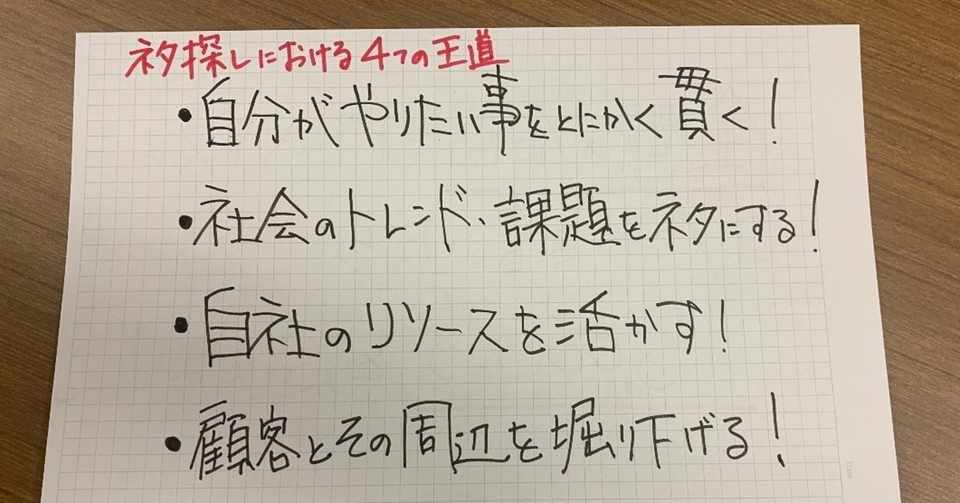 ネタ探しにおける4つの王道
・自分がやりたい事をとにかく貫く!
・社会のトレンド・課題をネタにする!
・自社のリソースを活かす!
・顧客とその周辺を掘り下げる!